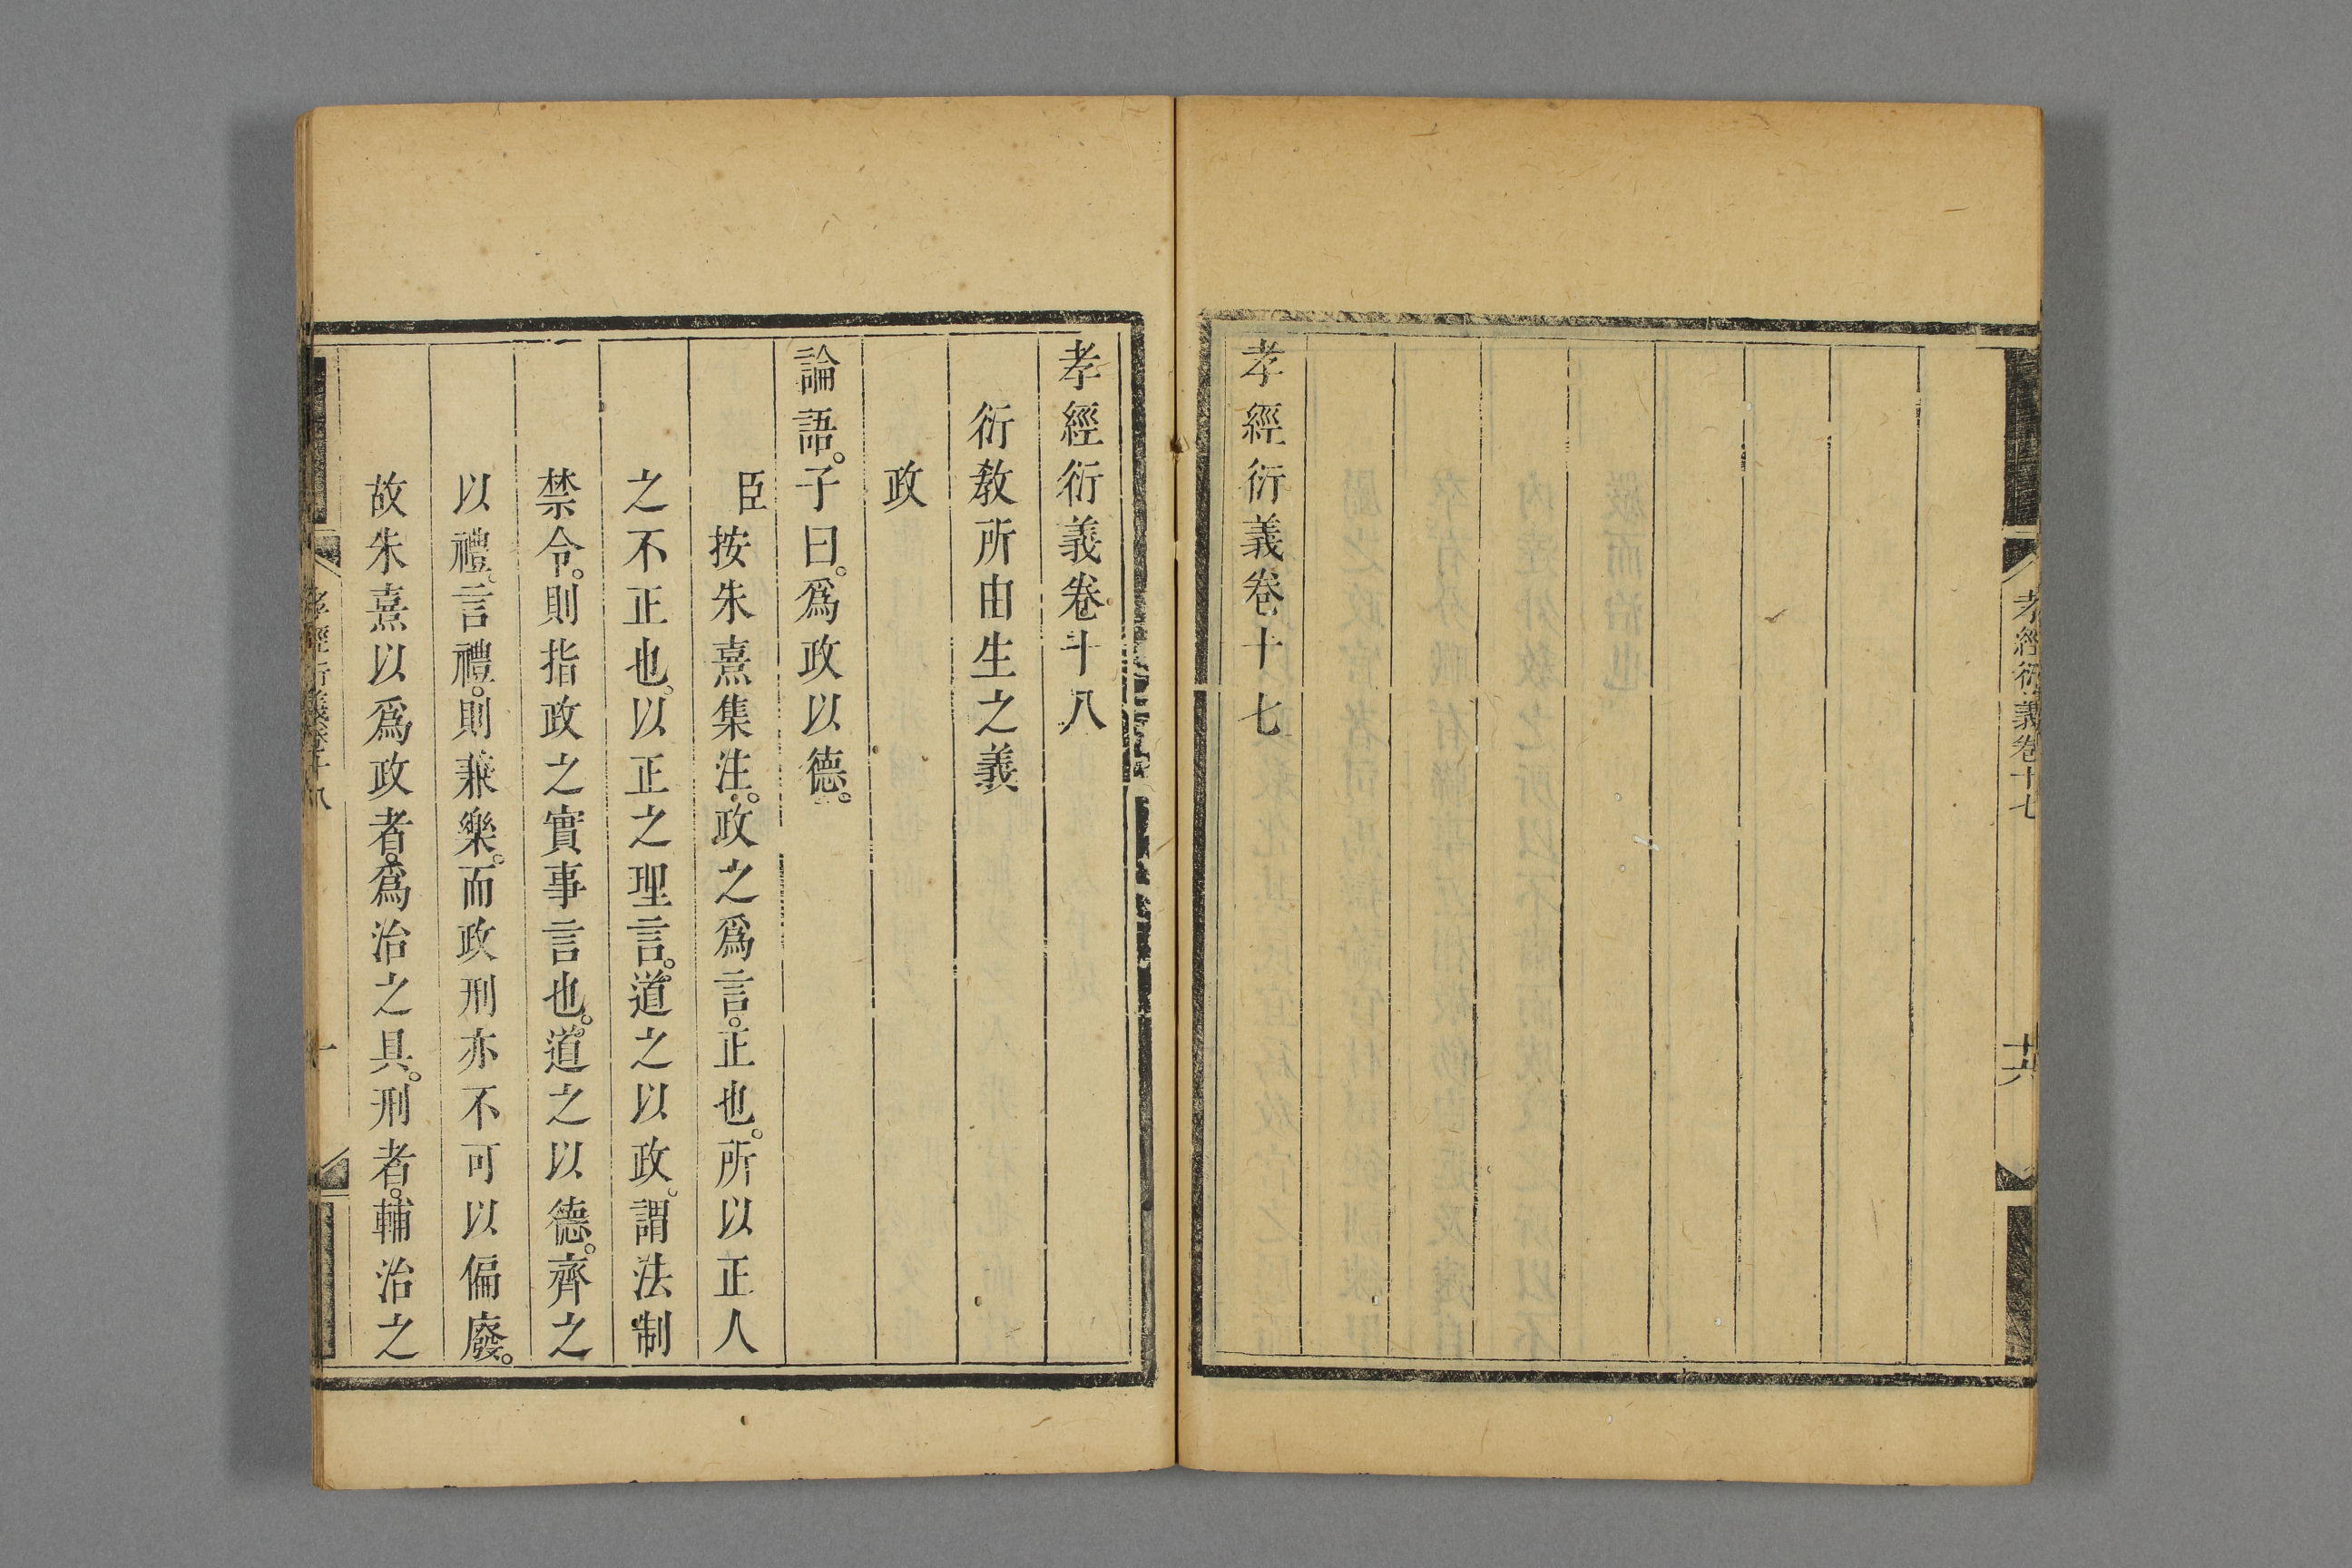 孝經衍義卷十七
廿六
孝經衍義卷十七
孝經衍義卷十八
衍敎所由生之義
政
論語。子曰。爲政以德。
臣按朱熹集注。政之爲言。正也。所以正人
之不正也。以正之理言。道之以政。謂法制
禁令。則指政之實事言也。道之以德。齊之
以禮。言禮。則兼樂。而政刑亦不可以偏廢。
故朱熹以爲政者。爲治之具。刑者。輔治之
孝經衍義卷十八
一